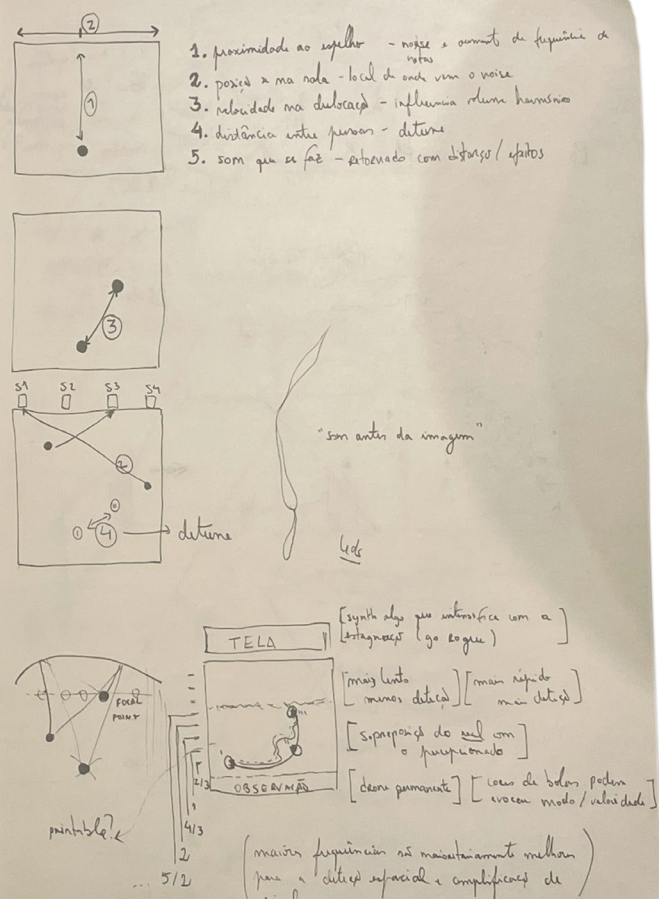 2
1. proximidade ao espelho - noise e aument de frequência de
notas
2. posiç x na sala - local de onde vem o noise
3. velocidade na deslocaç - influencia volume harmónico
4. distância entre pessoas - detune
5. som que se faz - retornado com distorço / efeitos
1
3
S1 S2 S3 S4
2
4
detune
"som antes da imagem"
Leds
TELA
[synth algo que intensifica com a
estagnaço (go rogue)]
FOCAL
POINT
[mais lento
menos deteço] [mais rápido
mais deteço]
[sopreposiço do real com
o percepcionado]
OBSERVAÇÃO
[drone permanente] [cores de bolas podem
evocar modo / velocidade]
2/3
1
4/3
2
5/2
printable?
(maiores frequências são maioritariamente melhores
para a deteço espacial e amplificaço de